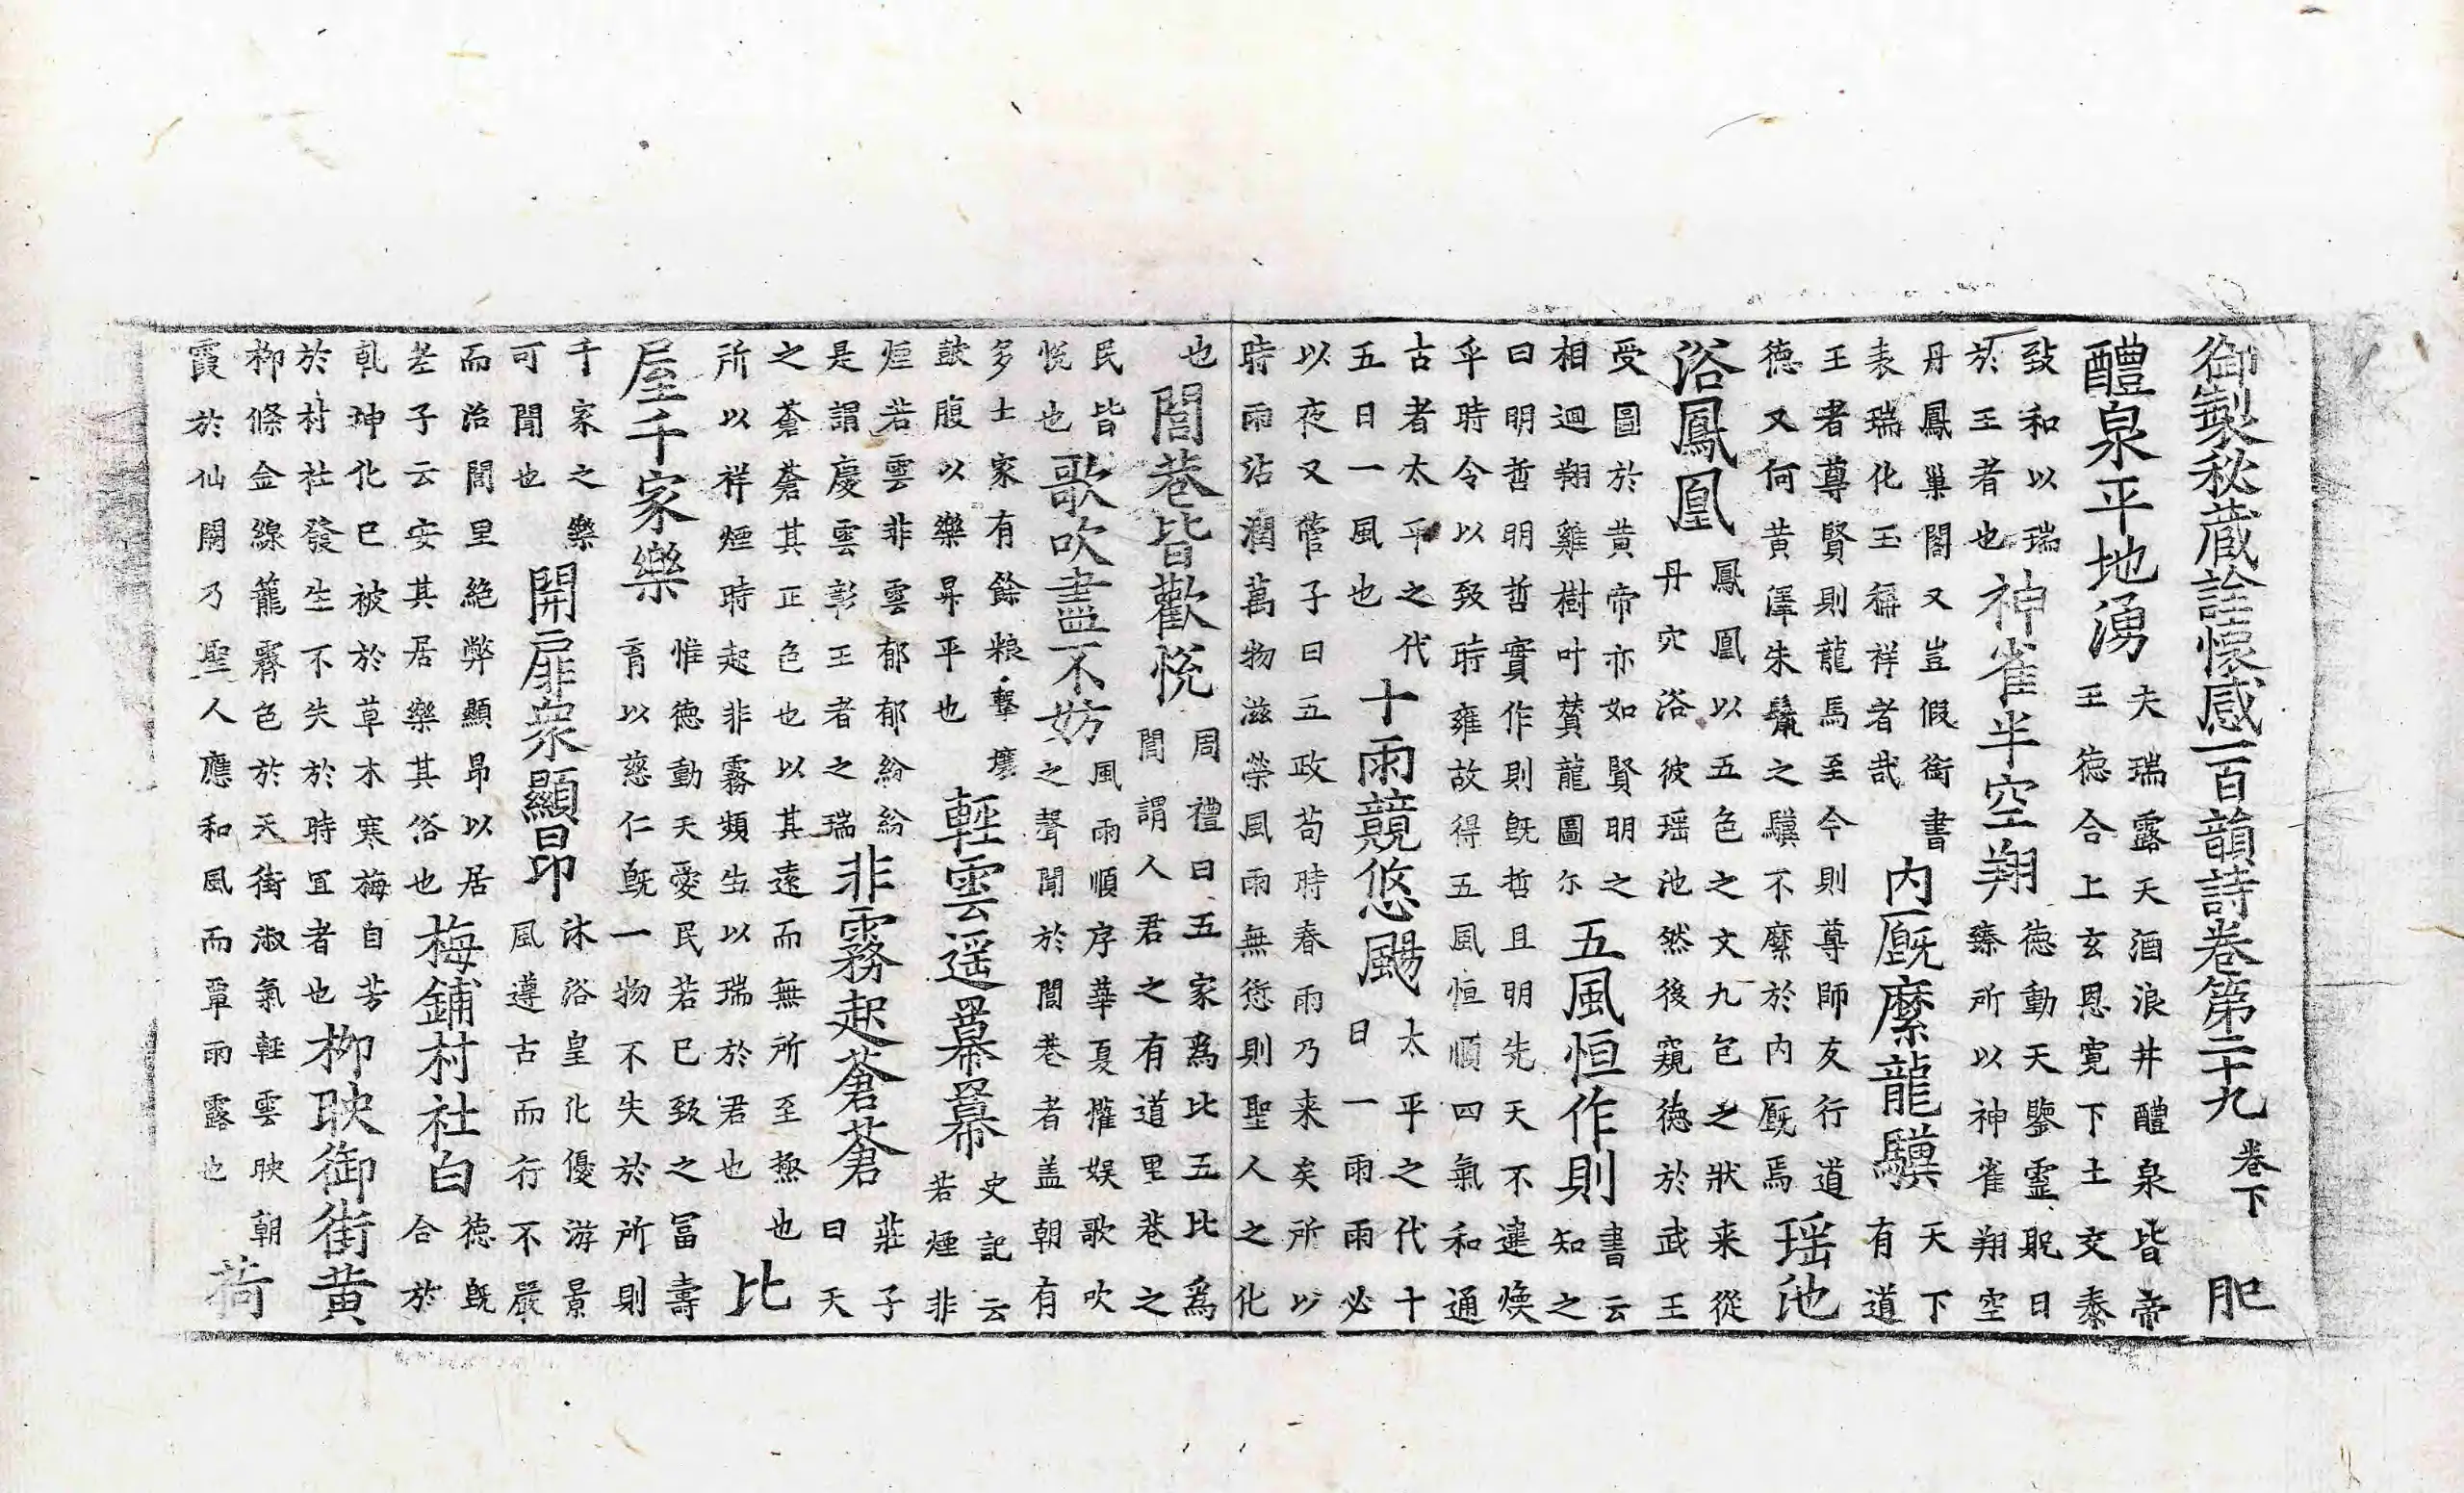 御製秘蔵詮懷感一百韻詩卷第二十九 卷下 肥
醴泉平地湧
夫瑞露天酒浪井醴泉皆帝
王德合上玄恩霓下土交泰
致和以瑞
於王者也
神雀半空翔
德動天鑒靈貺日
臻所以神雀翔空
丹鳳巢閣又豈假銜書
表瑞化玉稱祥者哉
内厩縻龍驥
天下
有道
王者尊賢則龍馬至今則尊師友行道
德又何黄澤朱鬣之驥不縻於内厩焉
瑶池
浴鳳凰
鳳凰以五色之文九包之狀来從
丹穴浴彼瑶池然後窺德於武王
受圖於黄帝亦如賢明之
相迴翔雞樹叶賛龍圖尒
五風恒作則
書云
知之
曰明哲明哲實作則旣哲且明先天不違煥
乎時令以致時雍故得五風恒順四氣和通
古者太平之代
五日一風也
十雨競悠颺
太平之代十
日一雨雨必
以夜又管子曰五政苟時春雨乃来矣所以
時雨沾潤萬物滋榮風雨無愆則聖人之化
也
閭巷皆歡悅
周禮曰五家爲比五比爲
閭謂人君之有道里巷之
民皆
悅也
歌吹盡不妨
風雨順序華夏懽娱歌吹
之聲聞於閭巷者盖朝有
多士家有餘粮擊壤
鼓腹以樂昇平也
輕雲遥羃羃
史記云
若煙非
烟若雲非雲郁郁紛紛
是謂慶雲彰王者之瑞
非霧起蒼蒼
莊子
曰天
之蒼蒼其正色也以其遠而無所至極也
所以祥煙時起非霧頻生以瑞於君也
比
屋千家樂
惟德動天愛民若已致之冨壽
育以慈仁旣一物不失於所則
千家之樂
可聞也
開扉衆顯昂
沐浴皇化優游景
風遵古而行不嚴
而治閭里絶弊顯昂以居
老子云安其居樂其俗也
梅鋪村社白
德旣
合於
乹坤化已被於草木寒梅自芳
於村社發生不失於時冝者也
柳映御街黄
柳條金線籠霽色於天街淑氣輕雲映朝
霞於仙闕乃聖人應和風而覃雨露也
荷